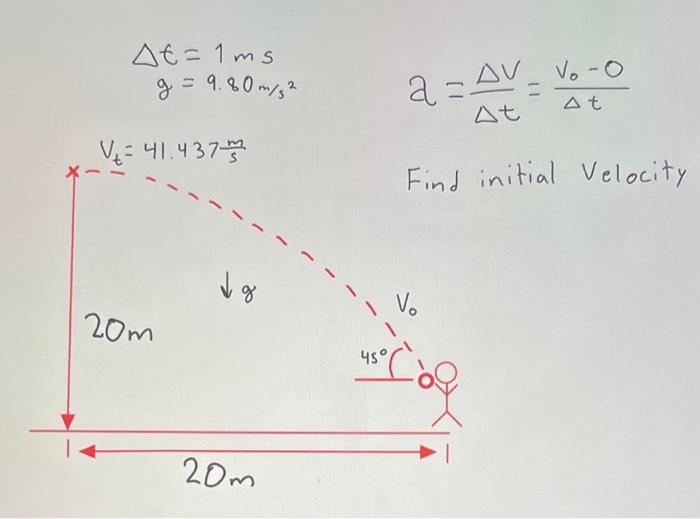 Δt = 1 ms
g = 9.80 m/s²
a = ΔV/Δt = V₀ - 0/Δt
Vₜ = 41.437 m/s
Find initial Velocity
↓ g
V₀
20m
45°
20m